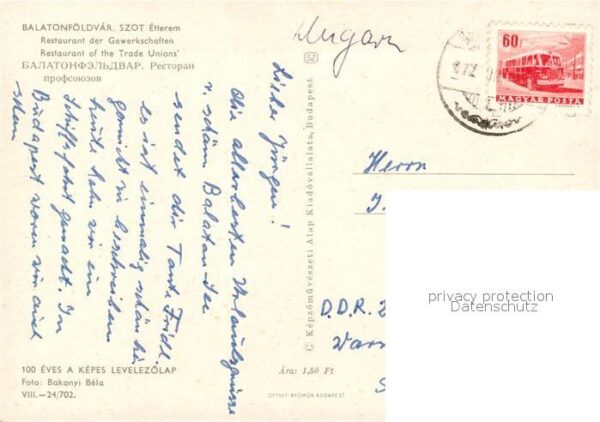 BALATONFÖLDVÁR. SZOT Étterem
Restaurant der Gewerkschaften
Restaurant of the Trade Unions'
БАЛАТОНФЭЛЬДВАР. Ресторан
профсоюзов
Ungarn
60f
MAGYAR POSTA
Lieber Jürgen!
Die allerbesten Urlaubsgrüsse
v. schönen Balaton See
sendet dir Tante Friedl.
es ist einmalig schön hi
garnicht zu beschreiben
heute haben wir ein
Schiffsfahrt gemacht. In
Budapest waren wir auch
schon
© Képzőművészeti Alap Kiadóvállalata, Budapest
Herrn
D.D.R. 2
privacy protection
Datenschutz
100 ÉVES A KÉPES LEVELEZŐLAP
Foto: Bakonyi Béla
VIII.—24/702.
Ára: 1,50 Ft
OFFSET-NYOMDA BUDAPEST